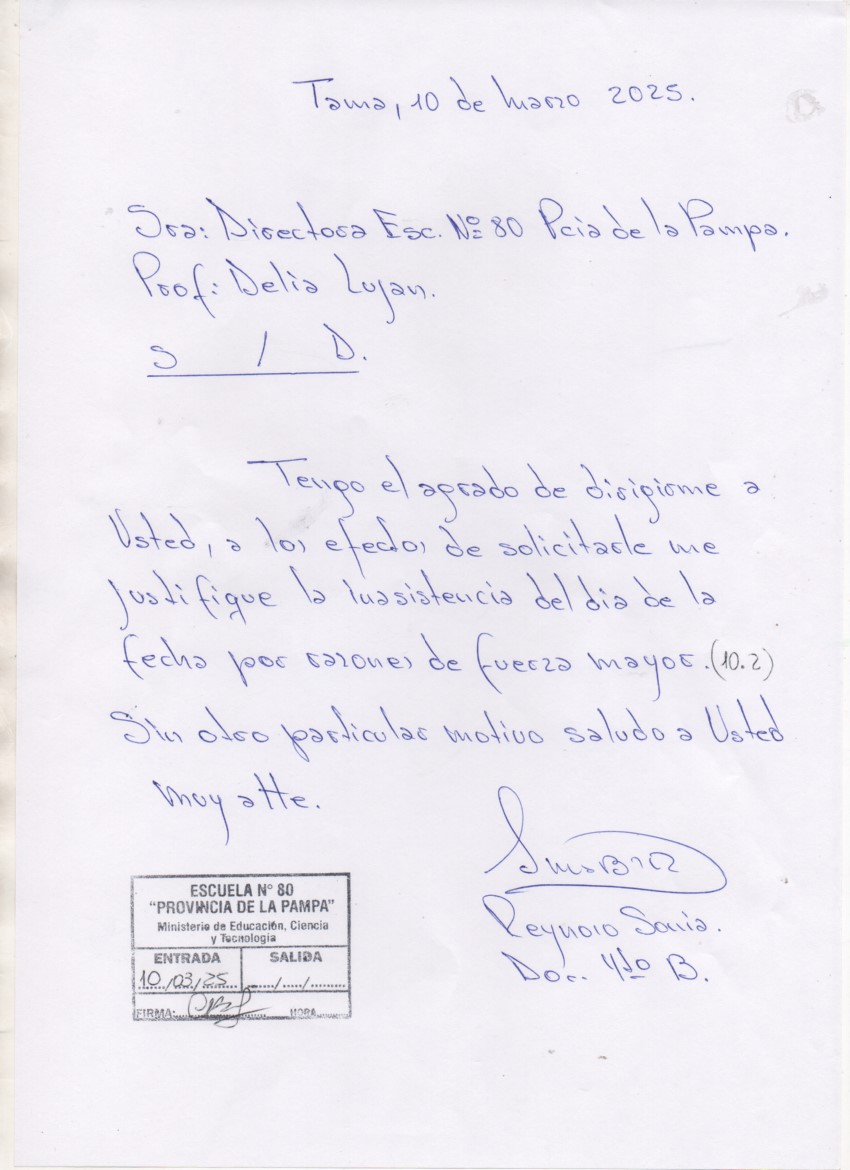 Tama, 10 de marzo 2025.
Sra: Directora Esc. Nº 80 Pcia de la Pampa.
Prof: Delia Lujan.
S / D.
Tengo el agrado de dirigirme a
Usted, a los efectos de solicitarle me
justifique la inasistencia del dia de la
fecha por razones de fuerza mayor. (10.2)
Sin otro particular motivo saludo a Usted
muy atte.
Reynoso Sonia.
Doc. 4to B.
ESCUELA N° 80
"PROVINCIA DE LA PAMPA"
Ministerio de Educación, Ciencia
y Tecnología
ENTRADA SALIDA
10/03/25 ..../..../........
FIRMA: HORA